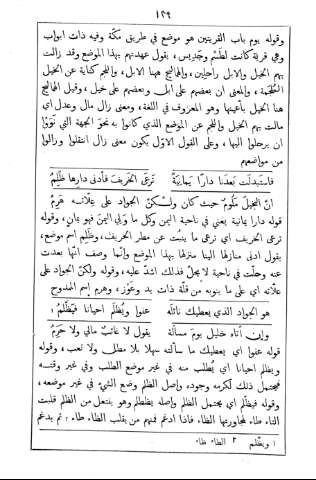 ١٢٩
وقوله يوم باب القريتين هو موضع في طريق مكّة وفيه ذات ابواب
وهي قرية كانت لطَسْم وجَديس، يقول عهدتهم بهذا الموضع وقد زالت
بهم الخيل والابل راحلين، والهماليج ههنا الابل، واللجم كناية عن الخيل
المُلْجَمة، والمعنى ان بعضهم على ابل وبعضهم على خيل، وقيل الهماليج
هنا الخيل بأعينها وهو المعروف في اللغة، ومعنى زال مال وعدل اي
مالت بهم الخيل واللجم عن الموضع الذي كانوا به نحو الجهة التي نَوَوْا
ان يرحلوا اليها، وعلى القول الاوّل يكون معنى زال انتقلوا وزالوا
من مواضعهم
فاستبدلتْ بعدنا دارًا يَمانِيَةً ترعَى الخَريفَ فأدنى دارِها ظَلِمُ
انّ البخيلَ ملومٌ حيث كان ولـكنّ الجوادَ على علّاته هَرِمُ
قوله دارا يمانية يعني في ناحية اليمن وكل ما ولي اليمن فهو يمانٍ، وقوله
ترعى الخريف اي ترعى ما ينبُت عن مطر الخريف، وظَلِم اسم موضع،
يقول ادنى منازلها الينا منزلها بهذا الموضع وانّما وصف انّها بعدت
عنه وحلّت في ناحية لا يحلّ فذلك اشدّ عليه، وقوله ولكنّ الجواد على
علّاته اي على ما ينوبه من قلّة ذات يد وعَوَز، وهرِم اسم الممدوح
هو الجوادُ الذي يعطيك نائلَه عفوا ويُظْلَم احيانا فيَظّلِمُ١
وإن أتاه خليل يومَ مسألة يقول لا غائبٌ مالي ولا حَرِمُ
قوله عفوا اي يعطيك ما سألته سهلا بلا مطل ولا تعب، وقوله
ويظلم احيانا اي يُطلب منه في غير موضع الطلب وفي غير وقتـه
فيحتمل ذلك لكرمه وجوده، واصل الظلم وضع الشيء في غير موضعه،
وقوله فيظّلم اي يحتمل الظلم واصله يظطلم وهو يفتعل من الظلم قلبت
التاء طاء لمجاورتها الظاء فاذا ادغم فمنهم من يقلب الظاء طاء٢ ثم يدغم
١ ويظّلم ٢ الطاء ظاء